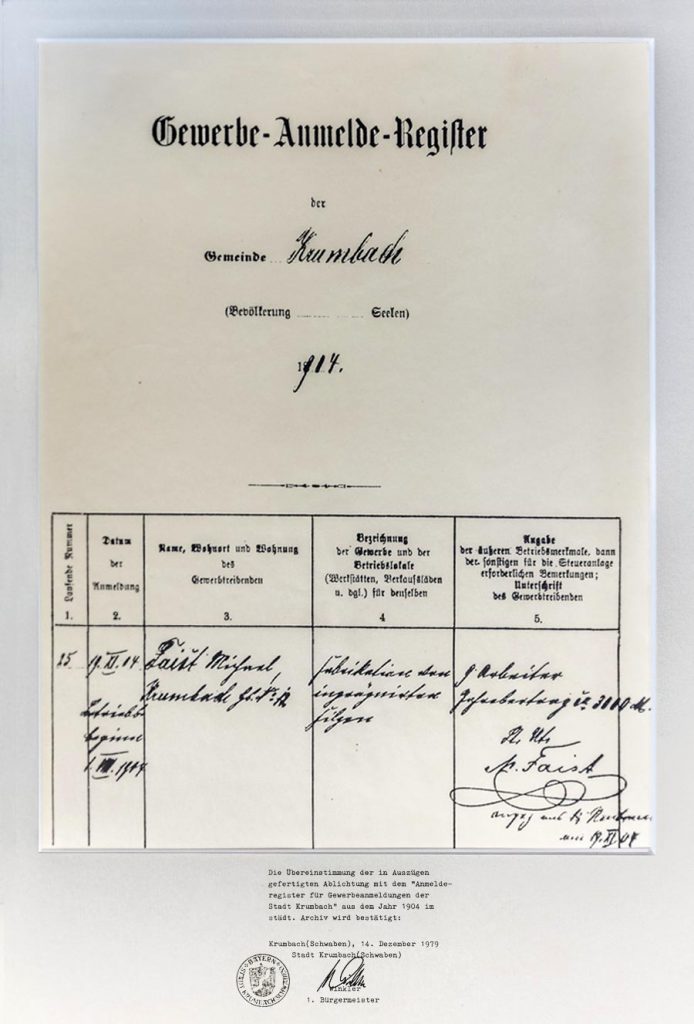 Gewerbe-Anmelde-Register
der
Gemeinde Krumbach
(Bevölkerung Seelen)
1904.
Laufende Nummer
1.
Datum
der
Anmeldung
2.
Name, Wohnort und Wohnung
des
Gewerbtreibenden
3.
Bezeichnung
der Gewerbe und der
Betriebslokale
(Werkstätten, Verkaufsläden
u. dgl.) für denselben
4
Angabe
der äußeren Betriebsmerkmale, dann
der sonstigen für die Steueranlage
erforderlichen Bemerkungen;
Unterschrift
des Gewerbtreibenden
5.
25
19. XI. 04
Betriebs
beginn
1. VIII. 1904
Faist Michael,
Krumbach Hs. No.
Fabrikation von
imprägnirten
Filzen
9 Arbeiter
Jahresertrag ca. 3000 M.
M. Faist
am 19. XI 04
Die Übereinstimmung der in Auszügen
gefertigten Ablichtung mit dem "Anmelde-
register für Gewerbeanmeldungen der
Stadt Krumbach" aus dem Jahr 1904 im
städt. Archiv wird bestätigt:
Krumbach(Schwaben), 14. Dezember 1979
Stadt Krumbach(Schwaben)
Winkler
1. Bürgermeister